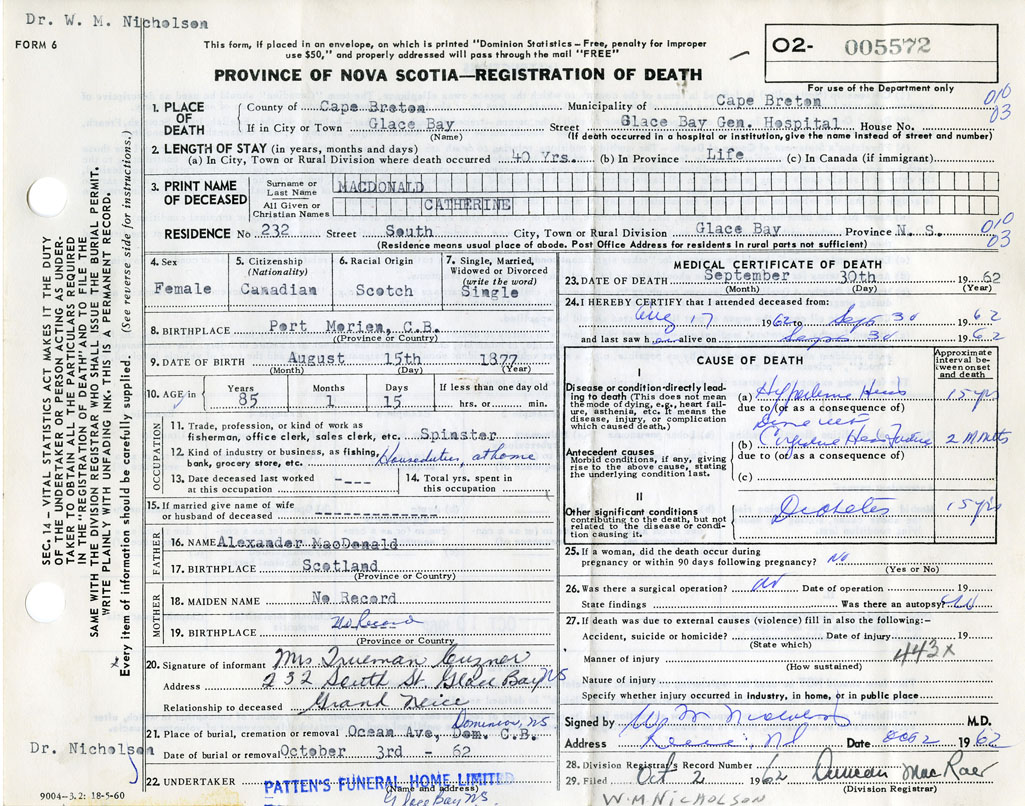 Dr. W. M. Nicholson
FORM 6
This form, if placed in an envelope, on which is printed "Dominion Statistics – Free, penalty for improper
use $50," and properly addressed will pass through the mail "FREE"
PROVINCE OF NOVA SCOTIA—REGISTRATION OF DEATH
O2- 005572
For use of the Department only
SEC. 14 – VITAL STATISTICS ACT MAKES IT THE DUTY
OF THE UNDERTAKER OR PERSON ACTING AS UNDER-
TAKER TO OBTAIN ALL THE PARTICULARS REQUIRED
IN THE "REGISTRATION OF DEATH" AND TO FILE THE
SAME WITH THE DIVISION REGISTRAR WHO SHALL ISSUE THE BURIAL PERMIT.
WRITE PLAINLY WITH UNFADING INK. THIS IS A PERMANENT RECORD.
Every item of information should be carefully supplied. (See reverse side for instructions.)
1. PLACE OF DEATH
County of Cape Breton Municipality of Cape Breton
010
03
If in City or Town Glace Bay Street Glace Bay Gen. Hospital House No.
(Name) (If death occurred in a hospital or institution, give the name instead of street and number)
2. LENGTH OF STAY (in years, months and days)
(a) In City, Town or Rural Division where death occurred 40 Yrs. (b) In Province Life (c) In Canada (if immigrant)
3. PRINT NAME OF DECEASED
Surname or Last Name MACDONALD
All Given or Christian Names CATHERINE
RESIDENCE No 232 Street South City, Town or Rural Division Glace Bay Province N. S.
010
03
(Residence means usual place of abode. Post Office Address for residents in rural parts not sufficient)
4. Sex
Female
5. Citizenship
(Nationality)
Canadian
6. Racial Origin
Scotch
7. Single, Married,
Widowed or Divorced
(write the word)
Single
8. BIRTHPLACE Port Morien, C.B.
(Province or Country)
9. DATE OF BIRTH August 15th 1877
(Month) (Day) (Year)
10. AGE in Years Months Days If less than one day old
85 1 15 hrs. or min.
OCCUPATION
11. Trade, profession, or kind of work as
fisherman, office clerk, sales clerk, etc. Spinster
12. Kind of industry or business, as fishing,
bank, grocery store, etc. Houseduties, at home
13. Date deceased last worked
at this occupation ----
14. Total yrs. spent in
this occupation
15. If married give name of wife
or husband of deceased -------------
FATHER
16. NAME Alexander MacDonald
17. BIRTHPLACE Scotland
(Province or Country)
MOTHER
18. MAIDEN NAME No Record
19. BIRTHPLACE No Record
(Province or Country)
20. Signature of informant Mrs Trueman Cuzner
Address 232 South St Glace Bay NS
Relationship to deceased Grand Neice
Dominion, NS.
21. Place of burial, cremation or removal Ocean Ave, Dom. C.B.
Date of burial or removal October 3rd - 62
Dr. Nicholson
22. UNDERTAKER PATTEN'S FUNERAL HOME LIMITED
(Name and address)
Glace Bay NS
9004—3.2: 18-5-60
MEDICAL CERTIFICATE OF DEATH
23. DATE OF DEATH September 30th 1962
(Month) (Day) (Year)
24. I HEREBY CERTIFY that I attended deceased from:
Aug 17 1962 to Sept 30 1962
and last saw her alive on Sept 30 1962
CAUSE OF DEATH
Approximate interval between onset and death
I
Disease or condition directly leading to death (This does not mean the mode of dying, e.g., heart failure, asthenia, etc. It means the disease, injury, or complication which caused death.)
(a) 15 yrs
due to (or as a consequence of)
Antecedent causes
Morbid conditions, if any, giving rise to the above cause, stating the underlying condition last.
(b) 2 Mnths
due to (or as a consequence of)
(c)
II
Other significant conditions
contributing to the death, but not related to the disease or condition causing it.
Diabetes 15 yrs
25. If a woman, did the death occur during
pregnancy or within 90 days following pregnancy? No
(Yes or No)
26. Was there a surgical operation? Date of operation 19
State findings Was there an autopsy? No
27. If death was due to external causes (violence) fill in also the following:-
Accident, suicide or homicide? Date of injury 19
(State which)
Manner of injury 443x
(How sustained)
Nature of injury
Specify whether injury occurred in industry, in home, or in public place
Signed by W M Nicholson M.D.
Address Date Oct 2 1962
28. Division Registrar's Record Number
29. Filed Oct 2 1962 Duncan MacRae
(Division Registrar)
W. M NICHOLSON